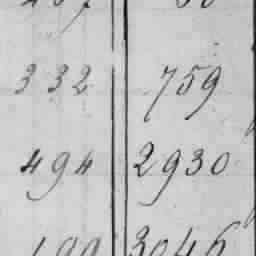 332 759
494 2930
199 3046